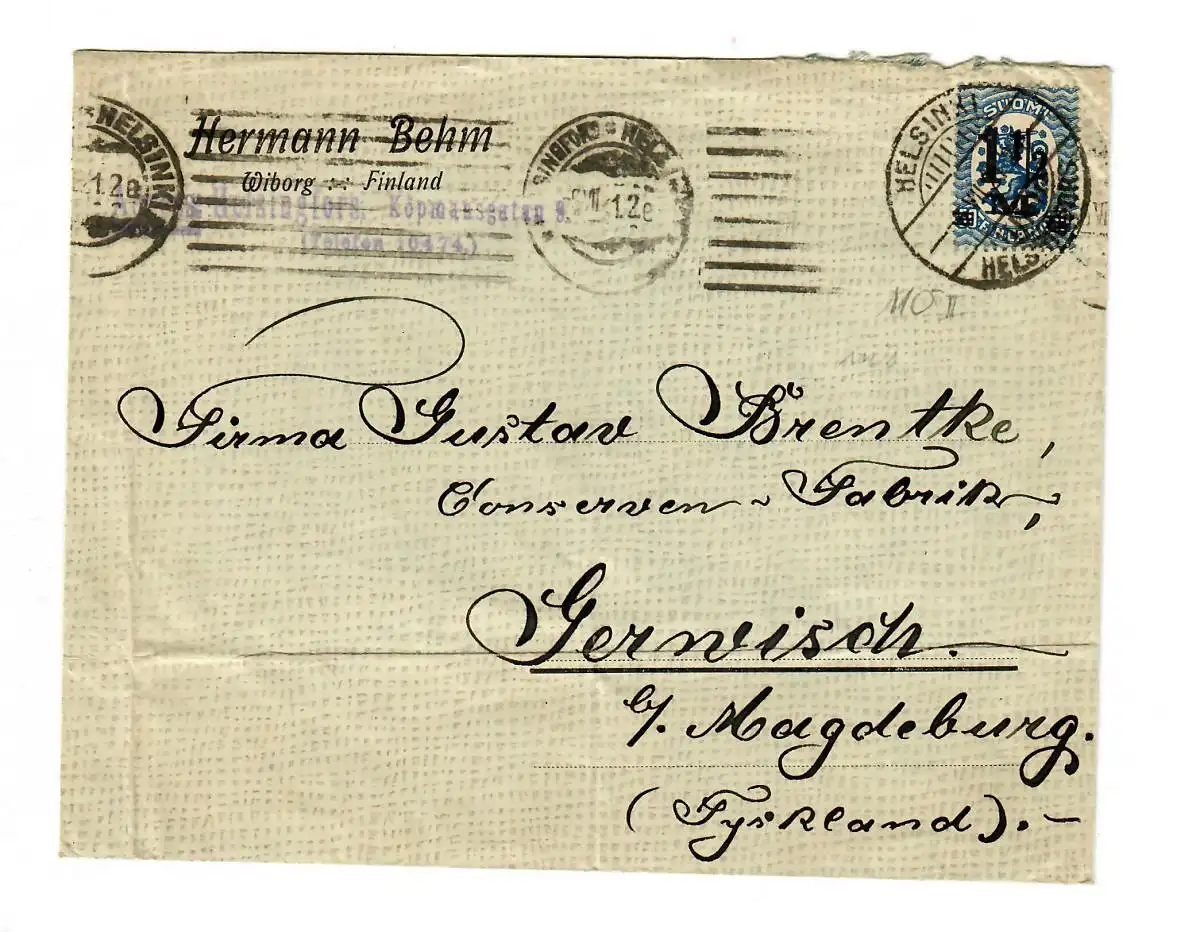 HELSINKI
Hermann Behm
Wiborg Finland
Helsingfors, Köpmansgatan 8.
(Telefon 10474.)
12e
VII 12e
HELSINKI
SUOMI
1 1/2
HELS
110 II
Firma Gustav Brentke,
Conserven-Fabrik,
Gerwisch.
b/. Magdeburg.
(Tyskland).-